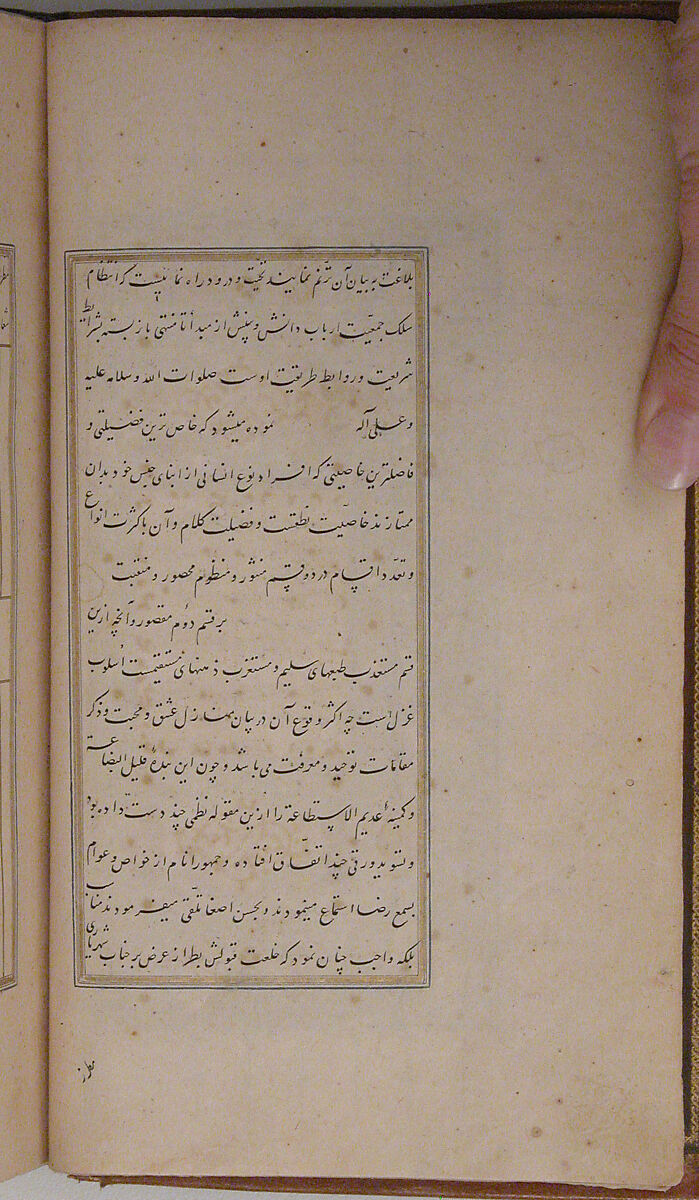 بلاغت به بیان آن ترنم نمایند تحیت و درود راه نمائیست که انتظام
سلک جمعیت ارباب دانش و بینش از مبدأ تا منتهی باز بسته بشرایط
شریعت و روابط طریقت اوست صلوات الله و سلامه علیه
و علی آله نموده میشود که خاص ترین فضیلتی و
فاضلترین خاصیتی که افراد نوع انسانی از ابنای جنس خود بدان
ممتازند خاصیت نطقست و فضیلت کلام و آن با کثرت انواع
و تعدد اقسام در دو قسم منثور و منظوم محصور و منقبت
بر قسم دوم مقصور و آنچه ازین
قسم مستعذب طبعهای سلیم و مستغرب ذهنهای مستقیمست اسلوب
غزل است چه اکثر وقوع آن در بیان منازل عشق و محبت و ذکر
مقامات توحید و معرفت می باشد و چون این بندهٔ قلیل البضاعة
و کمینهٔ عدیم الاستطاعة را ازین مقوله نظمی چند دست داده بود
و تسوید ورقی چند اتفاق افتاده و جمهور انام از خواص و عوام
بسمع رضا استماع مینمودند و بحسن اصغا تلقی میفرمودند مناسب
بلکه واجب چنان نمود که خلعت قبولش بطراز عرض بر جناب شهریاری